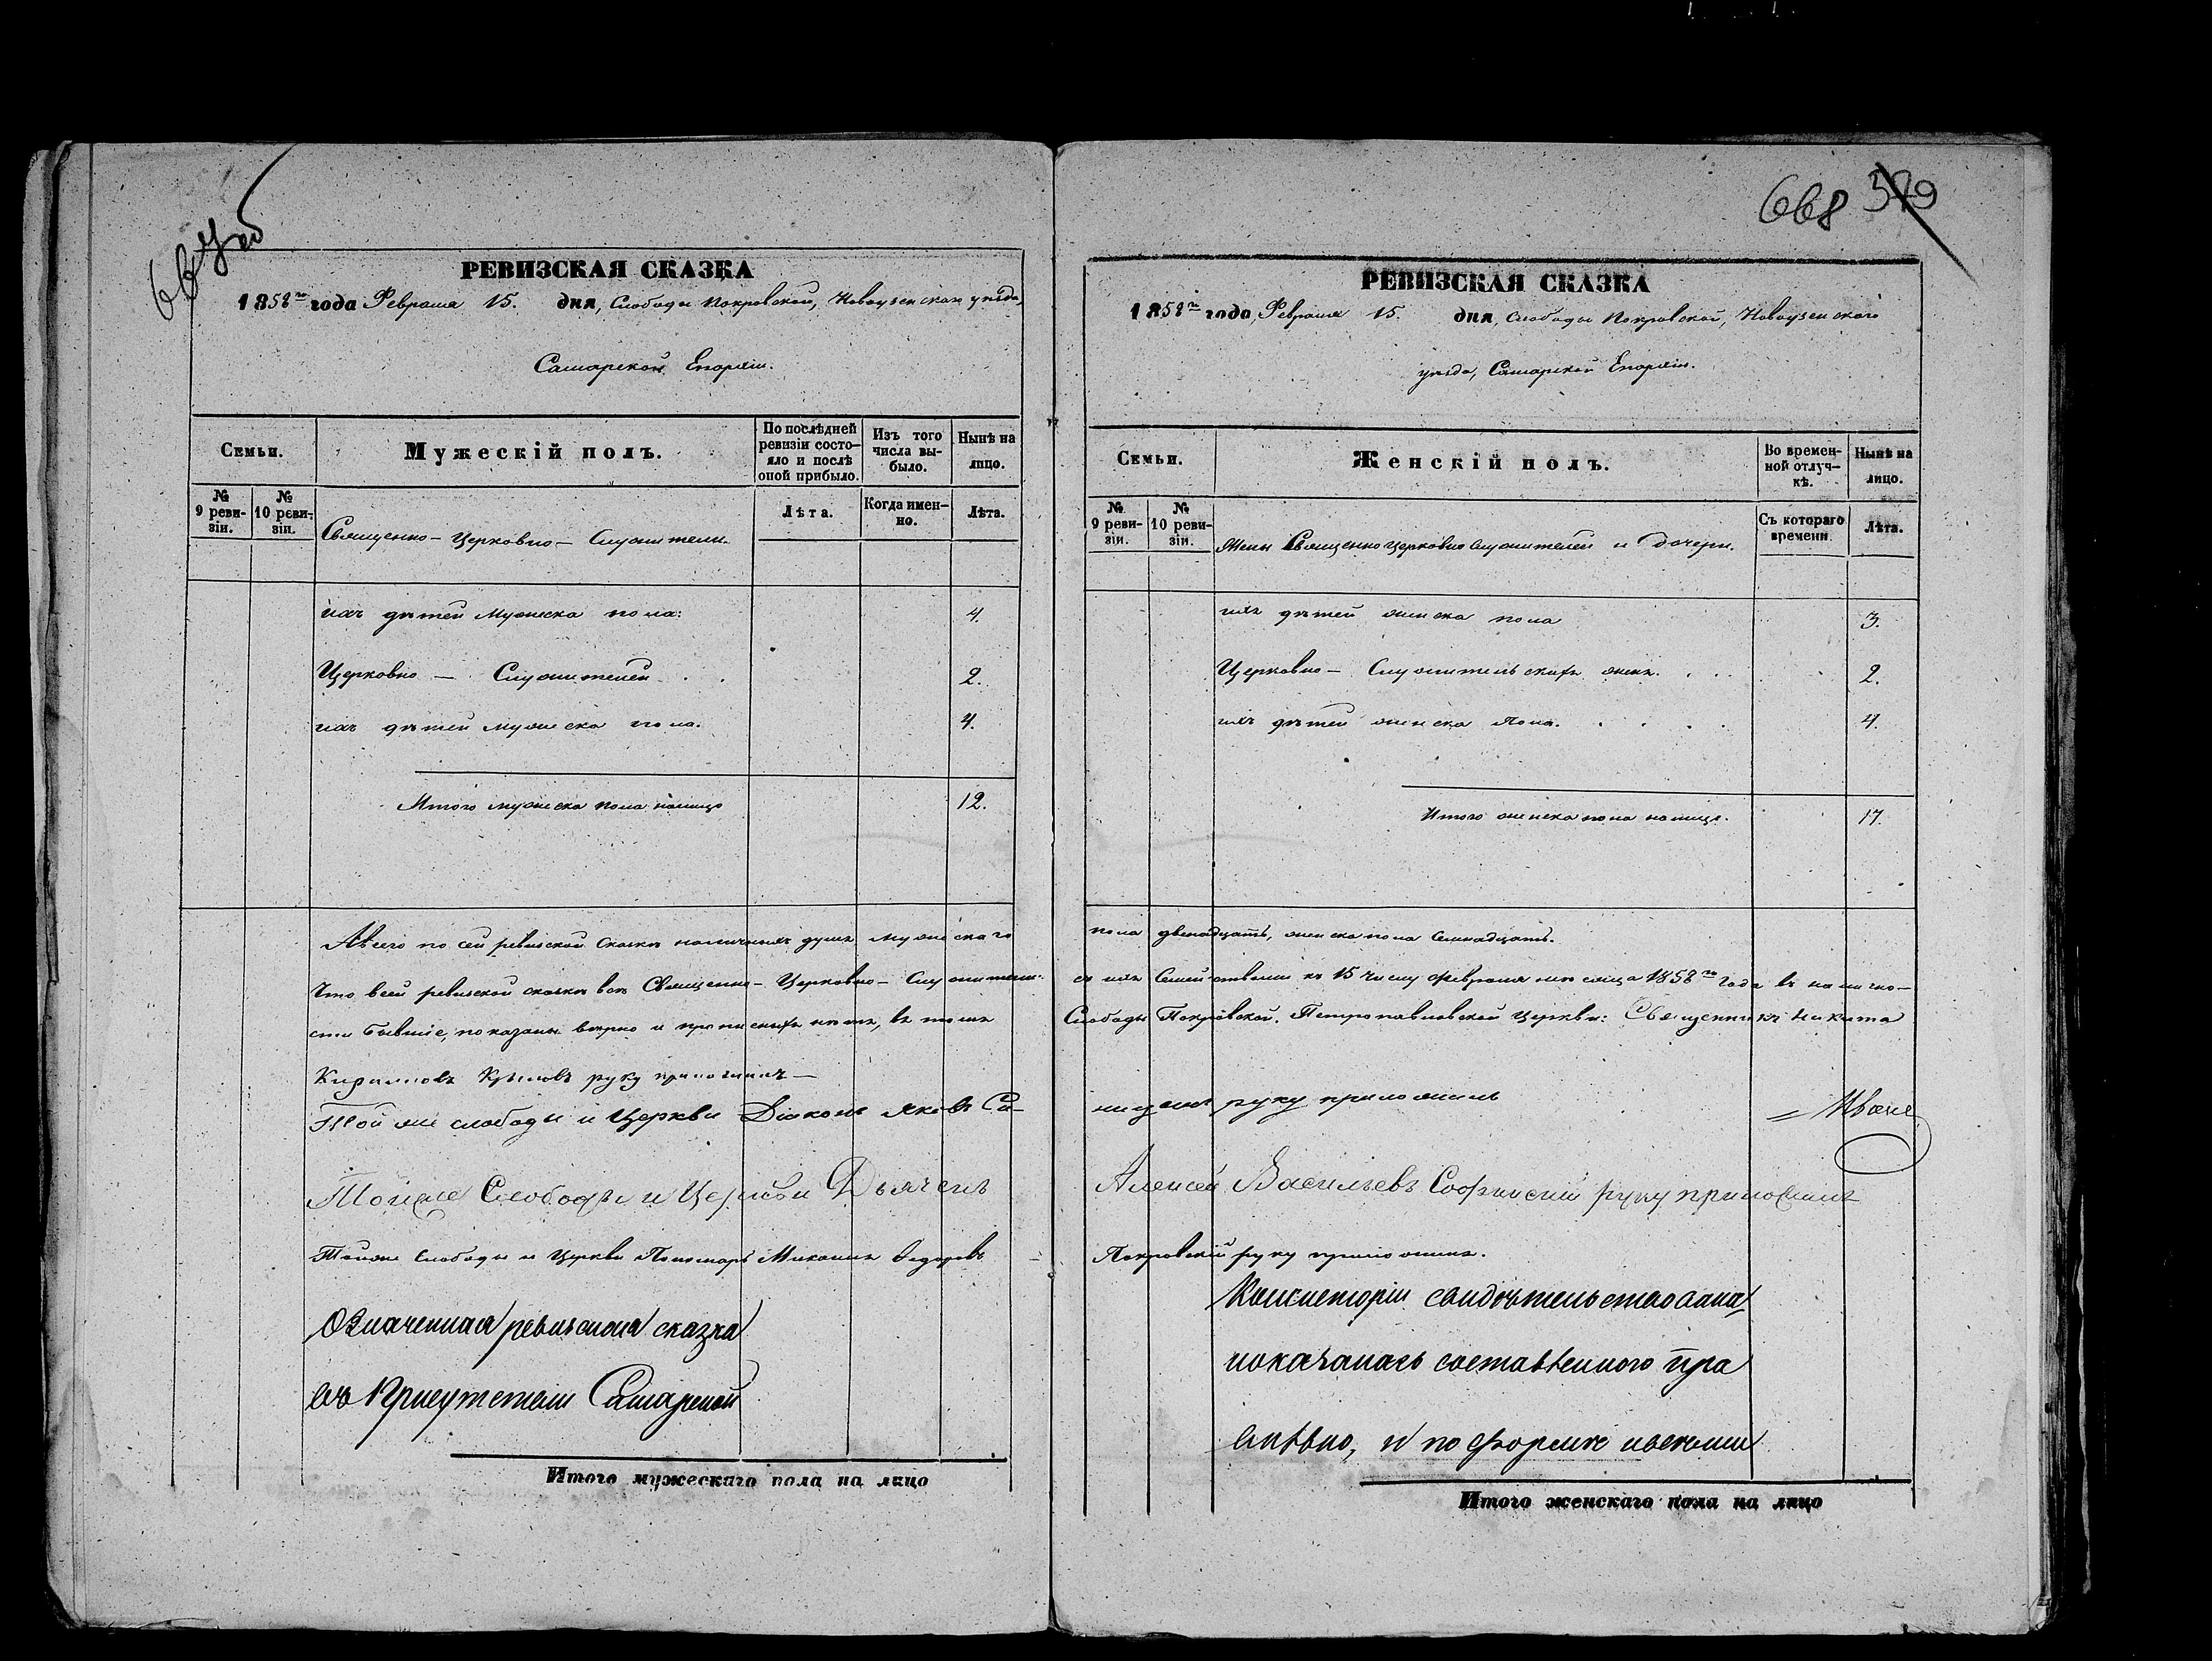 668 579
РЕВИЗСКАЯ СКАЗКА
1858го года Февраля 15. дня, Слободы Покровской, Новоузенскаго уѣзда,
Самарской Епархіи.
Семьи.
Мужескій полъ.
По послѣдней ревизіи состо-
яло и послѣ оной прибыло.
Изъ того числа вы-
было.
Нынѣ на лицо.
№ 9 реви-
зіи.
№ 10 реви-
зіи.
Лѣта.
Когда имен-
но.
Лѣта.
Священно-Церковно-Служители.
ихъ дѣтей мужеска пола: 4.
Церковно-Служителей . . 2.
ихъ дѣтей мужеска пола. 4.
Итого мужеска пола налицо 12.
А всего по сей ревизской сказкѣ наличныхъ душъ мужескаго
Что всей ревизской сказкѣ всѣ Священно-Церковно-Служители
сти бывшіе, показаны вѣрно и прописныхъ нѣтъ, въ томъ
Кириловъ Крыловъ руку приложилъ-
Той же слободы и Церкви Діаконъ Яковъ Си-
Тойже Слободы и Церкви Дьячекъ
Тойже Слободы и Церкви Пономарь Михаилъ Ѳедоровъ
Означенная ревизская сказка
въ Присутствіи Самарской
Итого мужескаго пола на лицо
РЕВИЗСКАЯ СКАЗКА
1858го года, Февраля 15. дня, Слободы Покровской, Новоузенскаго
уѣзда, Самарской Епархіи.
Семьи.
Женскій полъ.
Во времен-
ной отлуч-
кѣ.
Нынѣ на лицо.
№ 9 реви-
зіи.
№ 10 реви-
зіи.
Съ котораго времени.
Лѣта.
Жены Священноцерковнослужителей и дочери.
ихъ дѣтей женска пола 3.
Церковно-Служительскихъ женъ. . . . 2.
ихъ дѣтей женска пола. . . . . 4.
Итого женска пола налицо. 17.
пола двенадцать, женска пола семнадцать.
съ ихъ Семействами къ 15 числу февраля мѣсяца 1858го года въ налично-
Слободы Покровской. Петропавловской Церкви: Священникъ Никита
руку приложилъ
Алексей Васильевъ Софинский руку приложилъ
Покровскій руку приложилъ.
Консисторіи свидѣтельствована
показалась составленного пра
вильно, и по формѣ
Итого женскаго пола на лицо